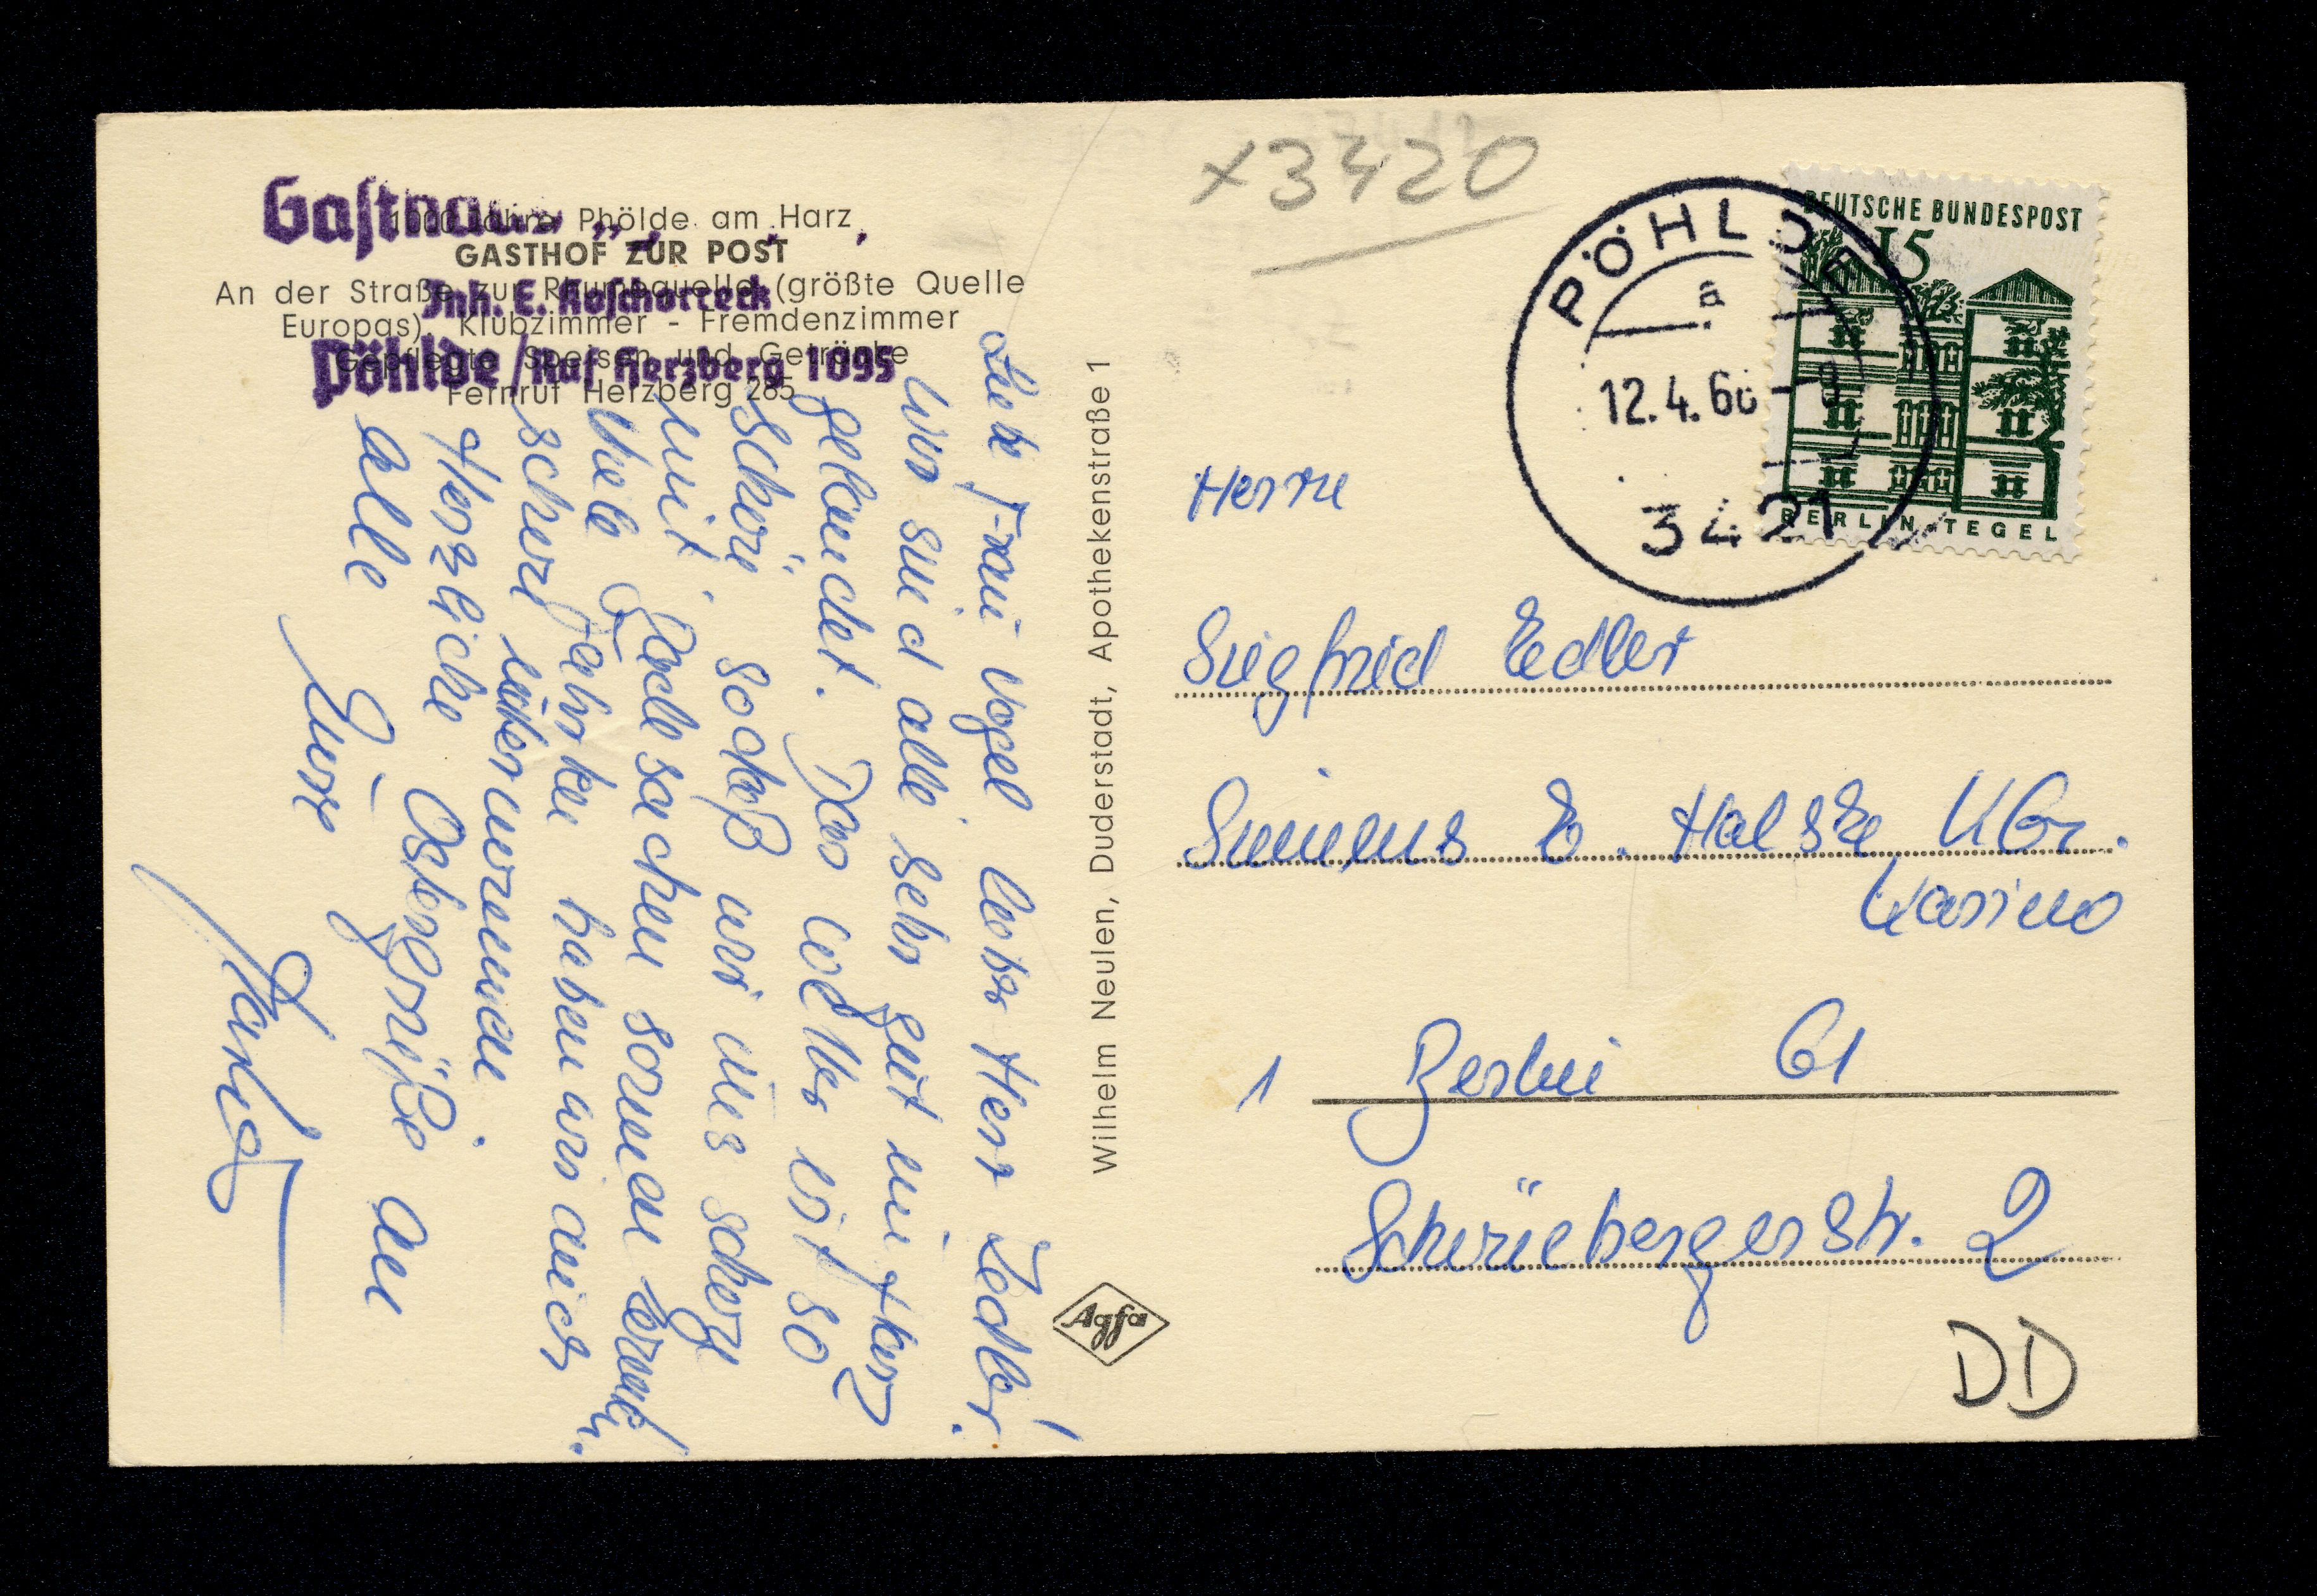 1000 Jahre Phölde am Harz
GASTHOF ZUR POST
An der Straße zur Rhumequelle (größte Quelle
Europas), Klubzimmer - Fremdenzimmer
Gepflegte Speisen und Getränke
Fernruf Herzberg 285
Gasthaus
Inh. E. Koschorreck
Pöhlde / Ruf Herzberg 1095
Frau Vogel lieber Herr Edler!
Wir sind alle sehr gut im Harz
gelandet. Das ist so
schön sodaß wir uns schon
mit
Viele
haben wir auch
Herzliche Ostergrüße an
alle
Eure
Wilhelm Neulen, Duderstadt, Apothekenstraße 1
Agfa
x3420
PÖHLDE
a
12.4.66-9
3421
DEUTSCHE BUNDESPOST
15
BERLIN-TEGEL
Herrn
Siegfried Edler
Siemens &. Halske
Kasino
1 Berlin 61
Schönebergerstr. 2
DD